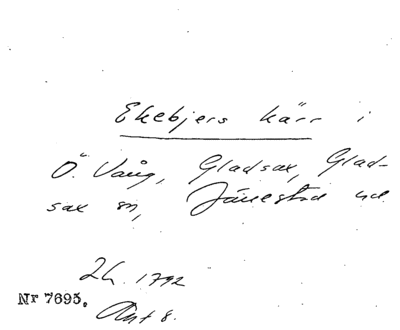 Ekebjers kärr i
Ö. Vång, Gladsax, Glad-
sax sn, Järrestad hd.
Lh. 1792
Nr 7695.
Akt 8.